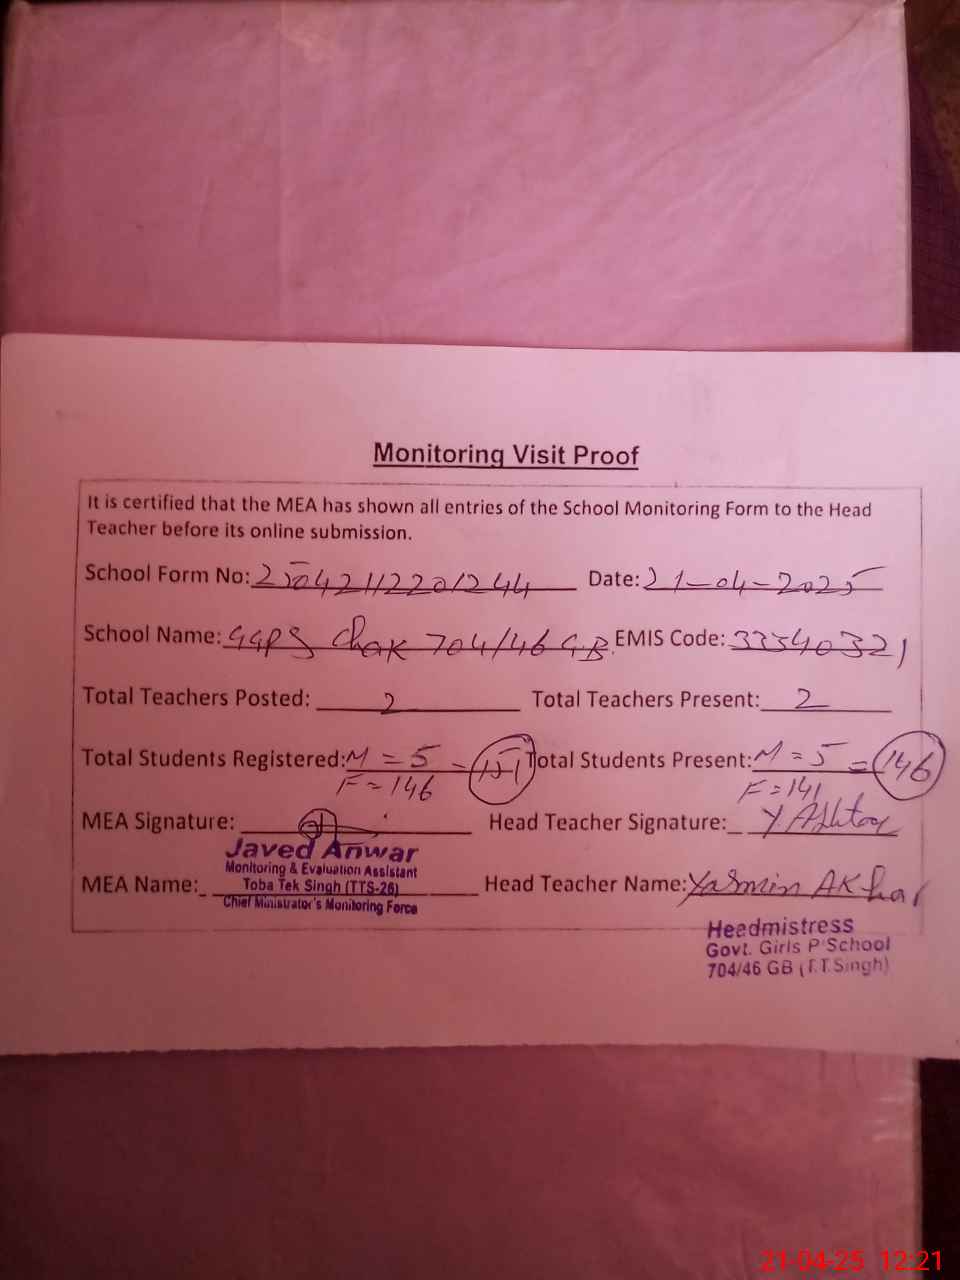 Monitoring Visit Proof
It is certified that the MEA has shown all entries of the School Monitoring Form to the Head
Teacher before its online submission.
School Form No: 25042112201244 Date: 21-04-2025
School Name: GGPS Chak 704/46 G.B. EMIS Code: 33340321
Total Teachers Posted: 2 Total Teachers Present: 2
Total Students Registered: M = 5 = 151 Total Students Present: M = 5 = 146
F = 146 F = 141
MEA Signature: Head Teacher Signature: Y. Akhtar
Javed Anwar
Monitoring & Evaluation Assistant
MEA Name: Toba Tek Singh (TTS-26) Head Teacher Name: Yasmin Akhar
Chief Minister's Monitoring Force
Headmistress
Govt. Girls P School
704/46 GB (T.T.Singh)
21-04-25 12:21